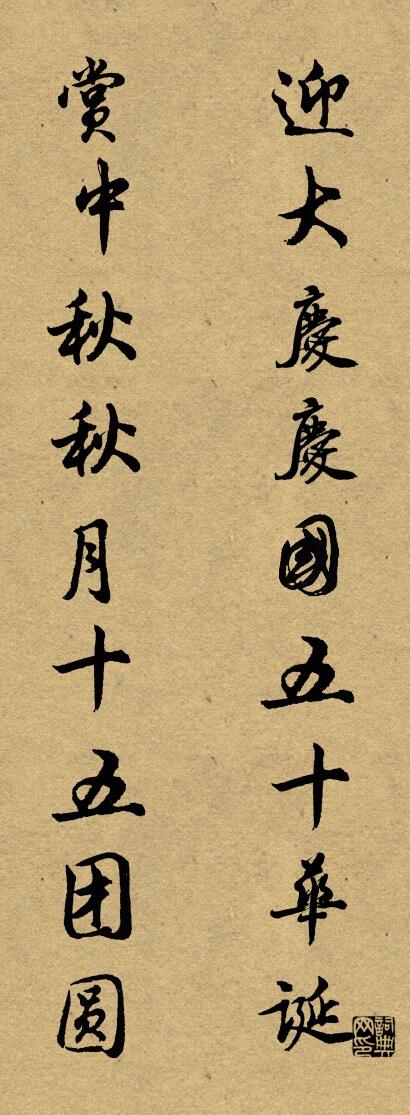 迎大慶慶國五十華誕
賞中秋秋月十五团圆
詞典网印